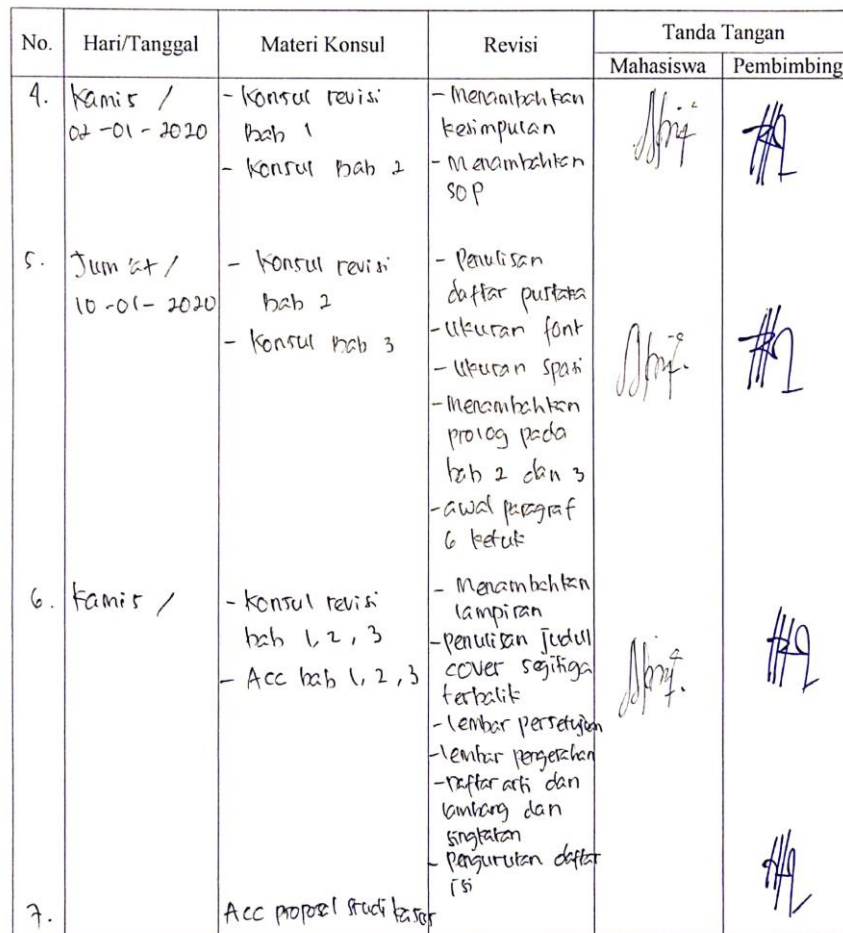 No. Hari/Tanggal Materi Konsul Revisi Tanda Tangan
Mahasiswa Pembimbing
4. Kamis /
02-01-2020
- Konsul revisi
bab 1
- Konsul bab 2
- Menambahkan
kesimpulan
- Menambahkan
SOP
5. Jum'at /
10-01-2020
- Konsul revisi
bab 2
- Konsul bab 3
- Penulisan
daftar pustaka
- Ukuran font
- Ukuran spasi
- Menambahkan
prolog pada
bab 2 dan 3
- awal paragraf
6 ketuk
6. Kamis /
- Konsul revisi
bab 1, 2, 3
- Acc bab 1, 2, 3
- Menambahkan
lampiran
- penulisan judul
cover segitiga
terbalik
- lembar persetujuan
- lembar pengesahan
- Daftar arti dan
lambang dan
singkatan
- Pengurutan daftar
isi
7. Acc proposal studi kasus